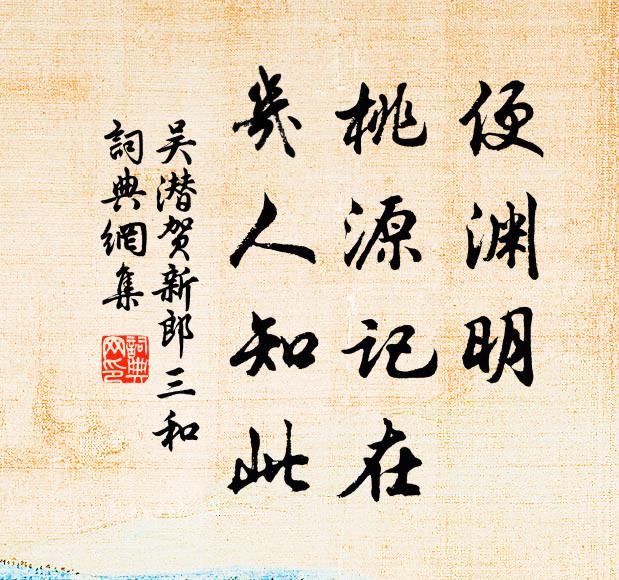 便渊明
桃源记在
幾人知此
吴潜贺新郎三和
詞典網集
詞典网印